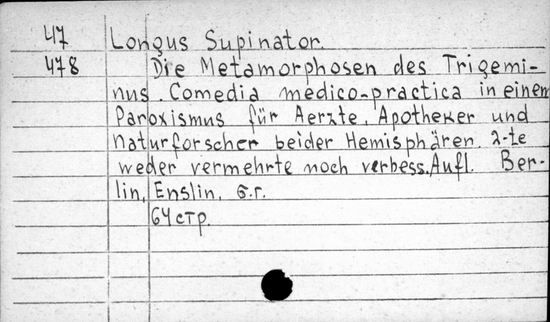 47 Longus Supinator.
478 Die Metamorphosen des Trigemi-
nus. Comedia medico-practica in einem
Paroxismus für Aerzte, Apotheker und
Naturforscher beider Hemisphären. 2-te
weder vermehrte noch verbess. Aufl. Ber-
lin, Enslin, б.г.
64 стр.